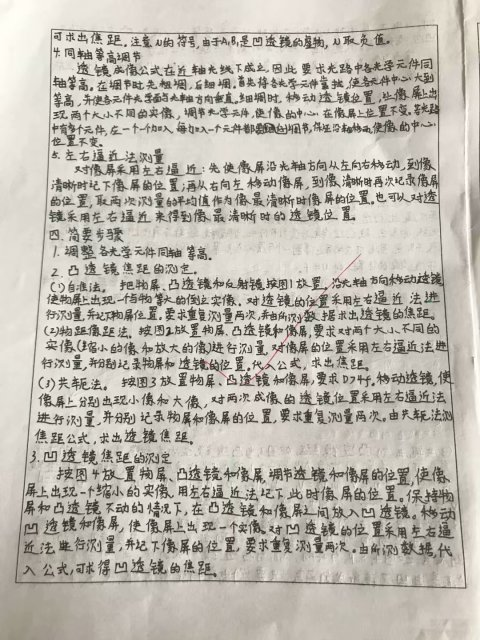 可求出焦距。注意u的符号,由于A₁B₁是凹透镜的虚物,u取负值。
4.同轴等高调节
透镜成像公式在近轴光线下成立,因此要求光路中各光学元件同
轴等高。在调节时先粗调,后细调。首先将各光学元件靠拢,使各元件中心大到
等高,并使各元件光学面与光轴方向垂直。细调时,移动透镜位置,让像屏上出
现两个大小不同的实像,调节光学元件,使像的中心在像屏上位置不变。若光路
中有多个元件,应一个一个加入,每加入一个元件都要调节,保证沿轴移动使像的中心
位置不变。
5.左右逼近法测量
对像屏采用左右逼近:先使像屏沿光轴方向从左向右移动,到像
清晰时记下像屏的位置;再从右向左移动像屏,到像清晰时再次记录像屏
的位置,取两次测量的平均值作为像最清晰时像屏的位置。也可以对透
镜采用左右逼近来得到像最清晰时的透镜位置。
四.简要步骤
1.调整各光学元件同轴等高。
2.凸透镜焦距的测定。
(1)自准法。把物屏、凸透镜和反射镜按图1放置,沿光轴方向移动透镜,
使物屏上出现一个与物等大的倒立实像,对透镜的位置采用左右逼近法进
行测量,并记下物屏位置。要求重复测量两次,并由所测数据求出透镜焦距。
(2)物距像距法。按图2放置物屏、凸透镜和像屏,要求对两个大小不同的
实像(缩小的像和放大的像)进行测量,对像屏的位置采用左右逼近法进
行测量,并分别记录物屏和透镜的位置。代入公式,求出焦距。
(3)共轭法。按图3放置物屏、凸透镜和像屏,要求D>4f。移动透镜,使
像屏上分别出现小像和大像,对两次成像的透镜位置采用左右逼近法
进行测量,并分别记录物屏和像屏的位置,要求重复测量两次。由共轭法测
焦距公式,求出透镜焦距。
3.凹透镜焦距的测定
按图4放置物屏、凸透镜和像屏,调节透镜和像屏的位置,使像
屏上出现一个缩小的实像,用左右逼近法记下此时像屏的位置。保持物
屏和凸透镜不动的情况下,在凸透镜和像屏之间放入凹透镜。移动
凹透镜和像屏,使像屏上出现一个实像,对凹透镜的位置采用左右逼
近法进行测量,并记下像屏的位置,要求重复测量两次。由所测数据代
入公式,可求得凹透镜的焦距。